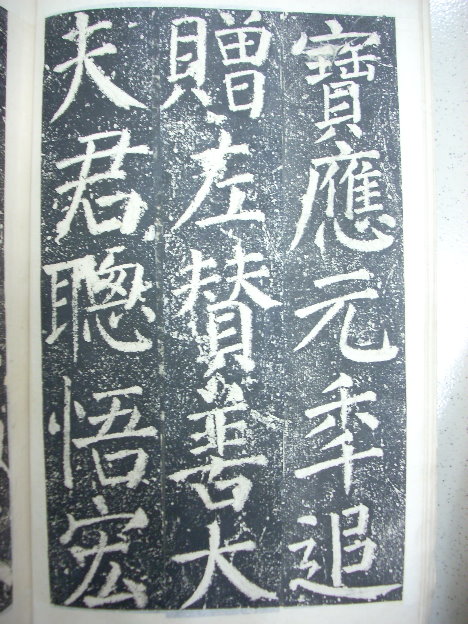 寶應元年追
贈左賛善大
夫君聰悟宏